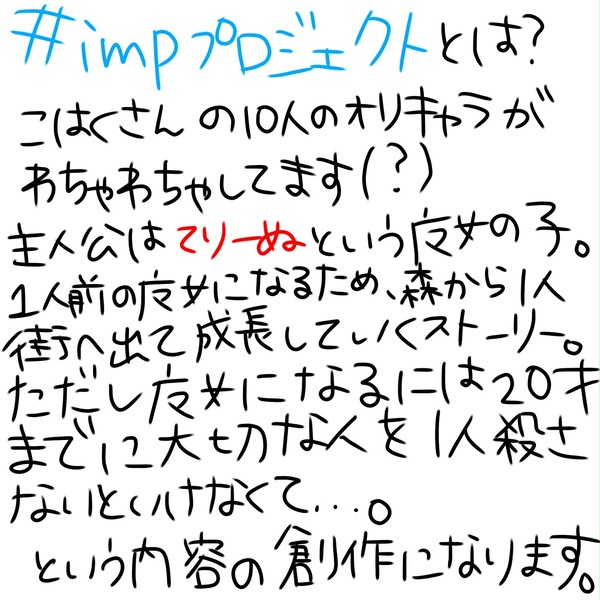 #impプロジェクトとは?
こはくさんの10人のオリキャラが
わちゃわちゃしてます(?)
主人公はてりーぬという魔女の子。
1人前の魔女になるため、森から1人
街へ出て成長していくストーリー。
ただし魔女になるには20才
までに大切な人を1人殺さ
ないといけなくて...。
という内容の創作になります。